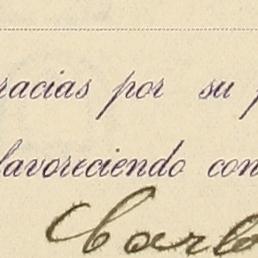 racias por su p
favoreciendo con
Carlo